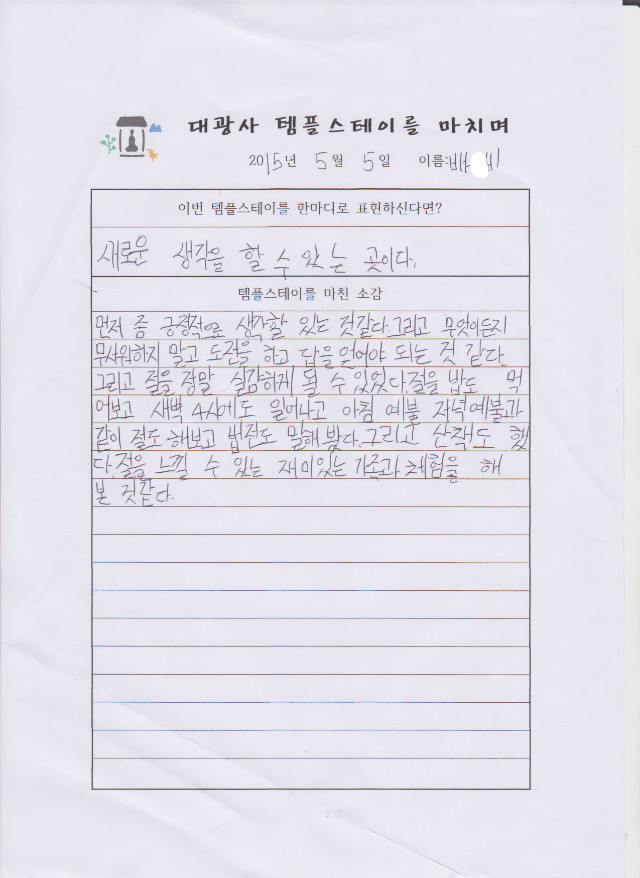 대광사 템플스테이를 마치며
2015년 5월 5일 이름:배
이번 템플스테이를 한마디로 표현하신다면?
새로운 생각을 할 수 있는 곳이다.
템플스테이를 마친 소감
먼저 좀 긍정적으로 생각할 있는 것같다.그리고 무엇이든지
무서워하지 말고 도전을 하고 답을 얻어야 되는 것 같다.
그리고 절을 정말 실감하게 될 수 있었다.절을 밥도 먹
어보고 새벽 4시에도 일어나고 아침 예불 저녁예불과
같이 절도 해보고 법전도 말해 봤다.그리고 산책도 했
다.절을 느낄 수 있는 재미있는 가족과 체험을 해
본 것같다.